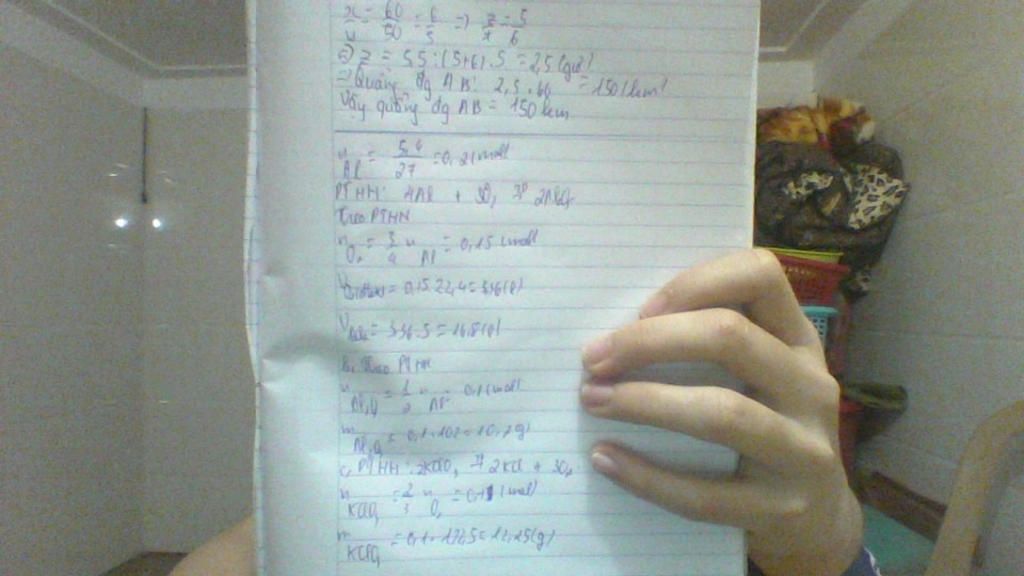 x/u = 60/50 = 6/5 => z/t = 5/6
=> z = 5,5 : (5+6) . 5 = 2,5 (giờ)
=> Quãng đg AB: 2,5 . 60 = 150 (km)
Vậy quãng đg AB = 150 km
n Al = 5,4/27 = 0,2 (mol)
PTHH: 4Al + 3O₂ → 2Al₂O₃
Theo PTHH
n O₂ = 3/4 n Al = 0,15 (mol)
V = 0,15.22,4 = 3,36 (l)
V = 3,36.5 = 16,8 (l)
b, Theo PTHH
n Al₂O₃ = 1/2 n Al = 0,1 (mol)
m Al₂O₃ = 0,1.102 = 10,2 (g)
c, PTHH: 2KClO₃ → 2KCl + 3O₂
n KClO₃ = 2/3 n O₂ = 0,1 (mol)
m KClO₃ = 0,1.122,5 = 12,25 (g)